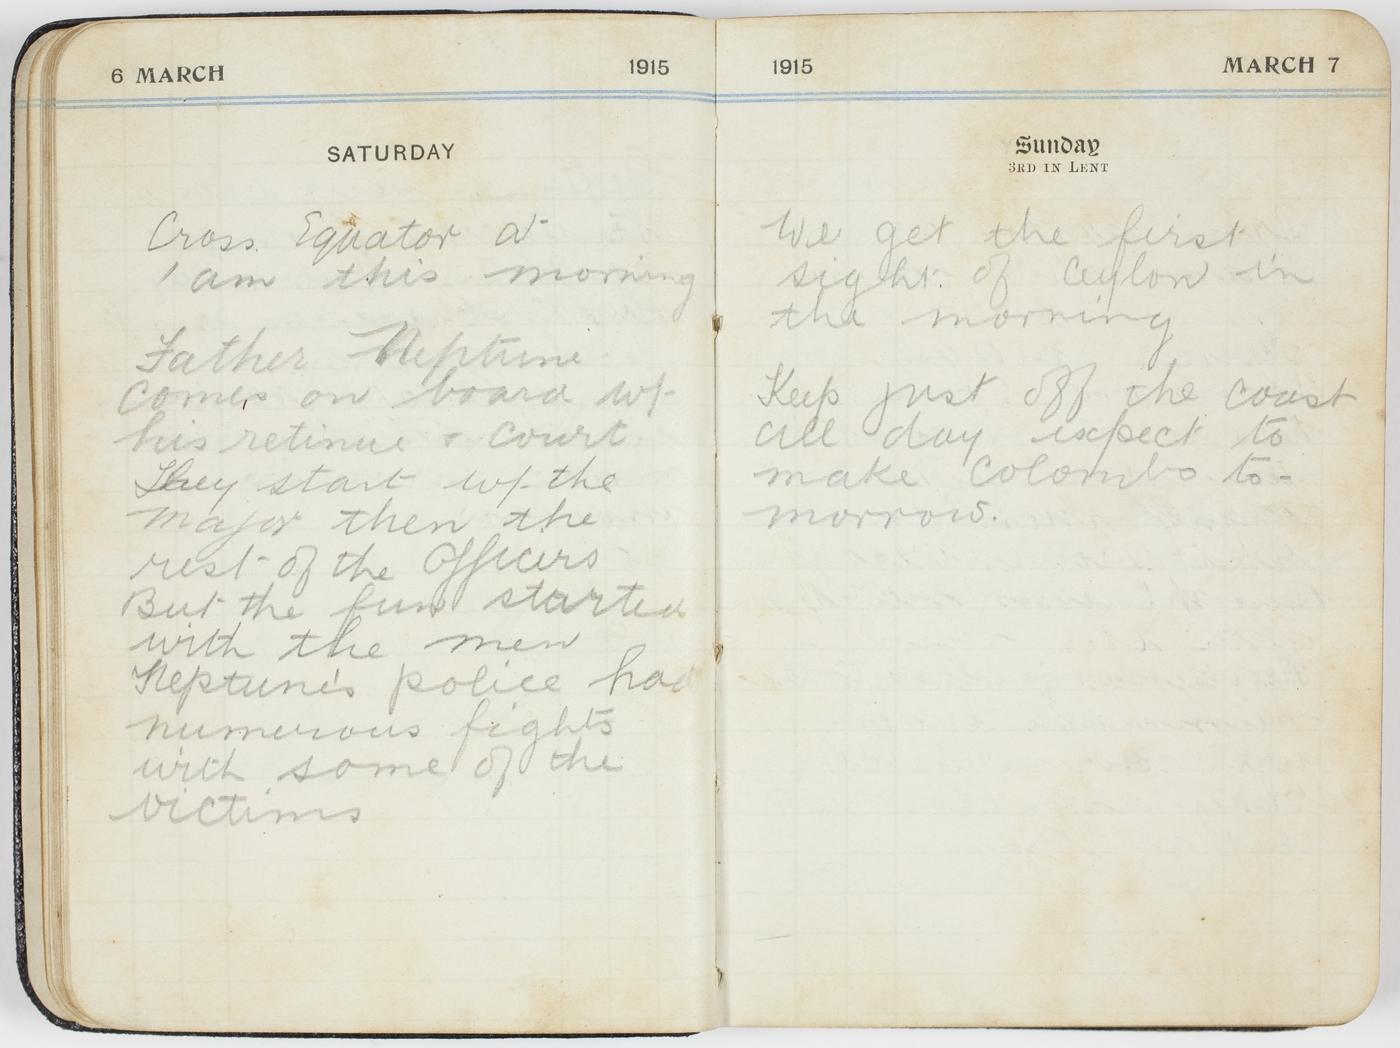 6 MARCH 1915
SATURDAY
Cross Equator at
1 am this morning
Father Neptune
comes on board w/-
his retinue & court
They start w/- the
major then the
rest of the Officers
But the fun started
with the men
Neptune's police had
numerous fights
with some of the
victims
1915 MARCH 7
Sunday
3RD IN LENT
We get the first
sight of Ceylon in
the morning
Keep just off the coast
all day expect to
make Colombo to-
morrow.